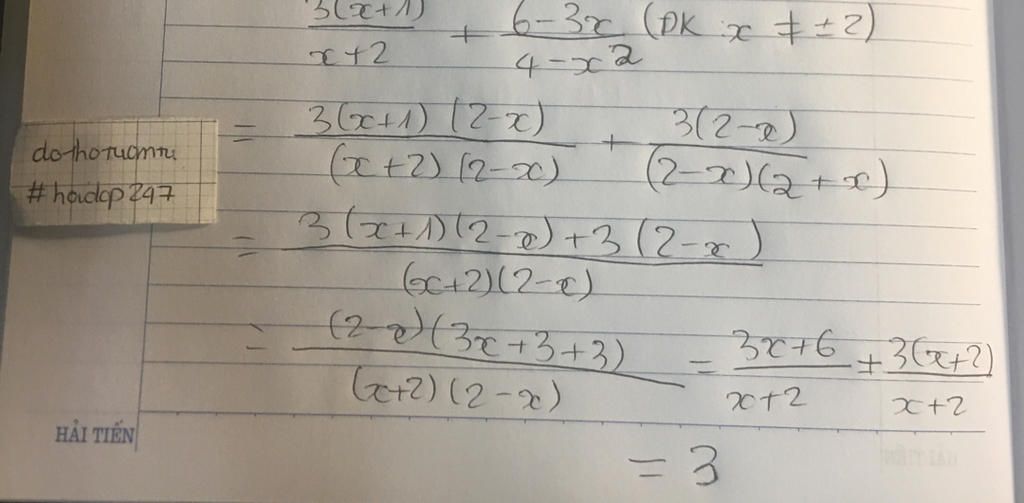 3(x+1)/x+2 + 6-3x/4-x² (ĐK x ≠ ±2)
= 3(x+1)(2-x)/(x+2)(2-x) + 3(2-x)/(2-x)(2+x)
dothotuomtu
#hoidap247
= 3(x+1)(2-x)+3(2-x)/(x+2)(2-x)
= (2-x)(3x+3+3)/(x+2)(2-x) = 3x+6/x+2 = 3(x+2)/x+2
HẢI TIẾN
= 3